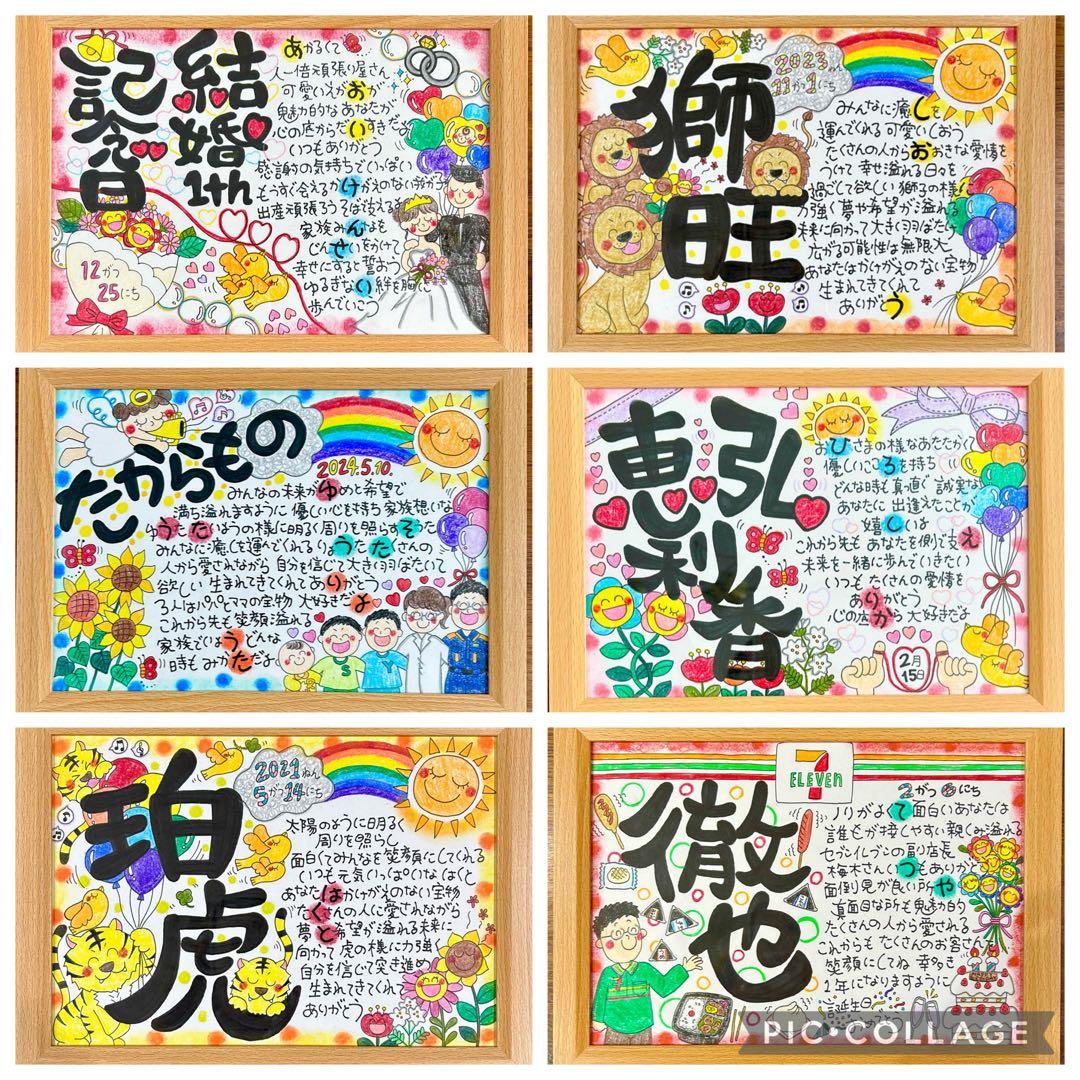 結婚1th
記念日
12がつ
25にち
あかるくて
人一倍頑張り屋さん
可愛いえがおが
魅力的なあなたが
心の底からだいすきだよ
いつもありがとう
感謝の気持ちでいっぱい
もうすぐ会えるかけがえのない我が子
出産頑張ろうそば支えるよ
家族みんなを
じんせいをかけて
幸せにすると誓おう
ゆるぎない絆を胸に
歩んでいこう
獅旺
2023
11がつ1にち
みんなに癒しを
運んでくれる可愛いしおう
たくさんの人からおおきな愛情を
うけて幸せ溢れる日々を
過ごして欲しい獅子の様に
力強く夢や希望が溢れる
未来に向かって大きく羽ばたけ
広がる可能性は無限大
あなたはかけがえのない宝物
生まれてきてくれて
ありがとう
たからもの
2024.5.10.
みんなの未来がゆめと希望で
満ち溢れますように優しい心を持ち家族想いな
ゆうたたいようの様に明るく周りを照らすそうた
みんなに癒しを運んでくれるりょうたたくさんの
人から愛されながら自分を信じて大きく羽ばたいて
欲しい生まれてきてくれてありがとう
3人はパパとママの宝物大好きだよ
これから先も笑顔溢れる
家族でいようどんな
時もみかただよ
弘
恵利香
おひさまの様なあたたかくて
優しいこころを持ち
どんな時も真っ直ぐ誠実な
あなたに出逢えたことが
嬉しいよ
これから先もあなたを側で支え
未来を一緒に歩んでいきたい
いつもたくさんの愛情を
ありがとう
心の底から大好きだよ
2月
15日
珀虎
2021ねん
5がつ14にち
太陽のように明るく
周りを照らし
面白くてみんなを笑顔にしてくれる
いつも元気いっぱいなはくと
あなたはかけがえのない宝物
たくさんの人に愛されながら
夢と希望が溢れる未来に
向かって虎の様に力強く
自分を信じて突き進め
生まれてきてくれて
ありがとう
7
ELEVEn
徹也
2がつ
ノリがよくて面白いあなたは
誰もが接しやすい親しみ溢れる
セブンイレブンの副店長
梅木さんいつもありがとう
面倒見が良い所や
真面目な所も魅力的
たくさんの人から愛される
これからもたくさんのお客さんを
笑顔にしてね幸多き
1年になりますように
誕生日
PIC•COLLAGE